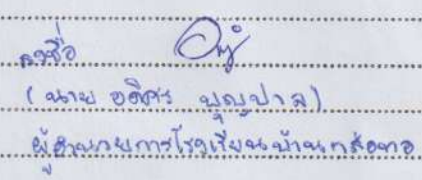 ลงชื่อ
(นาย อดิศร บุญปาล)
ผู้อำนวยการโรงเรียนบ้าน